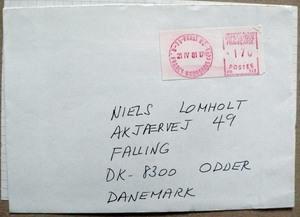 170
POSTES
NIELS LOMHOLT
AKJÆRVEJ 49
FALLING
DK-8300 ODDER
DANEMARK